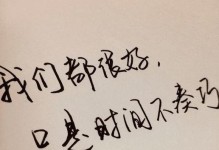 我们都很好，
只是时间不凑巧